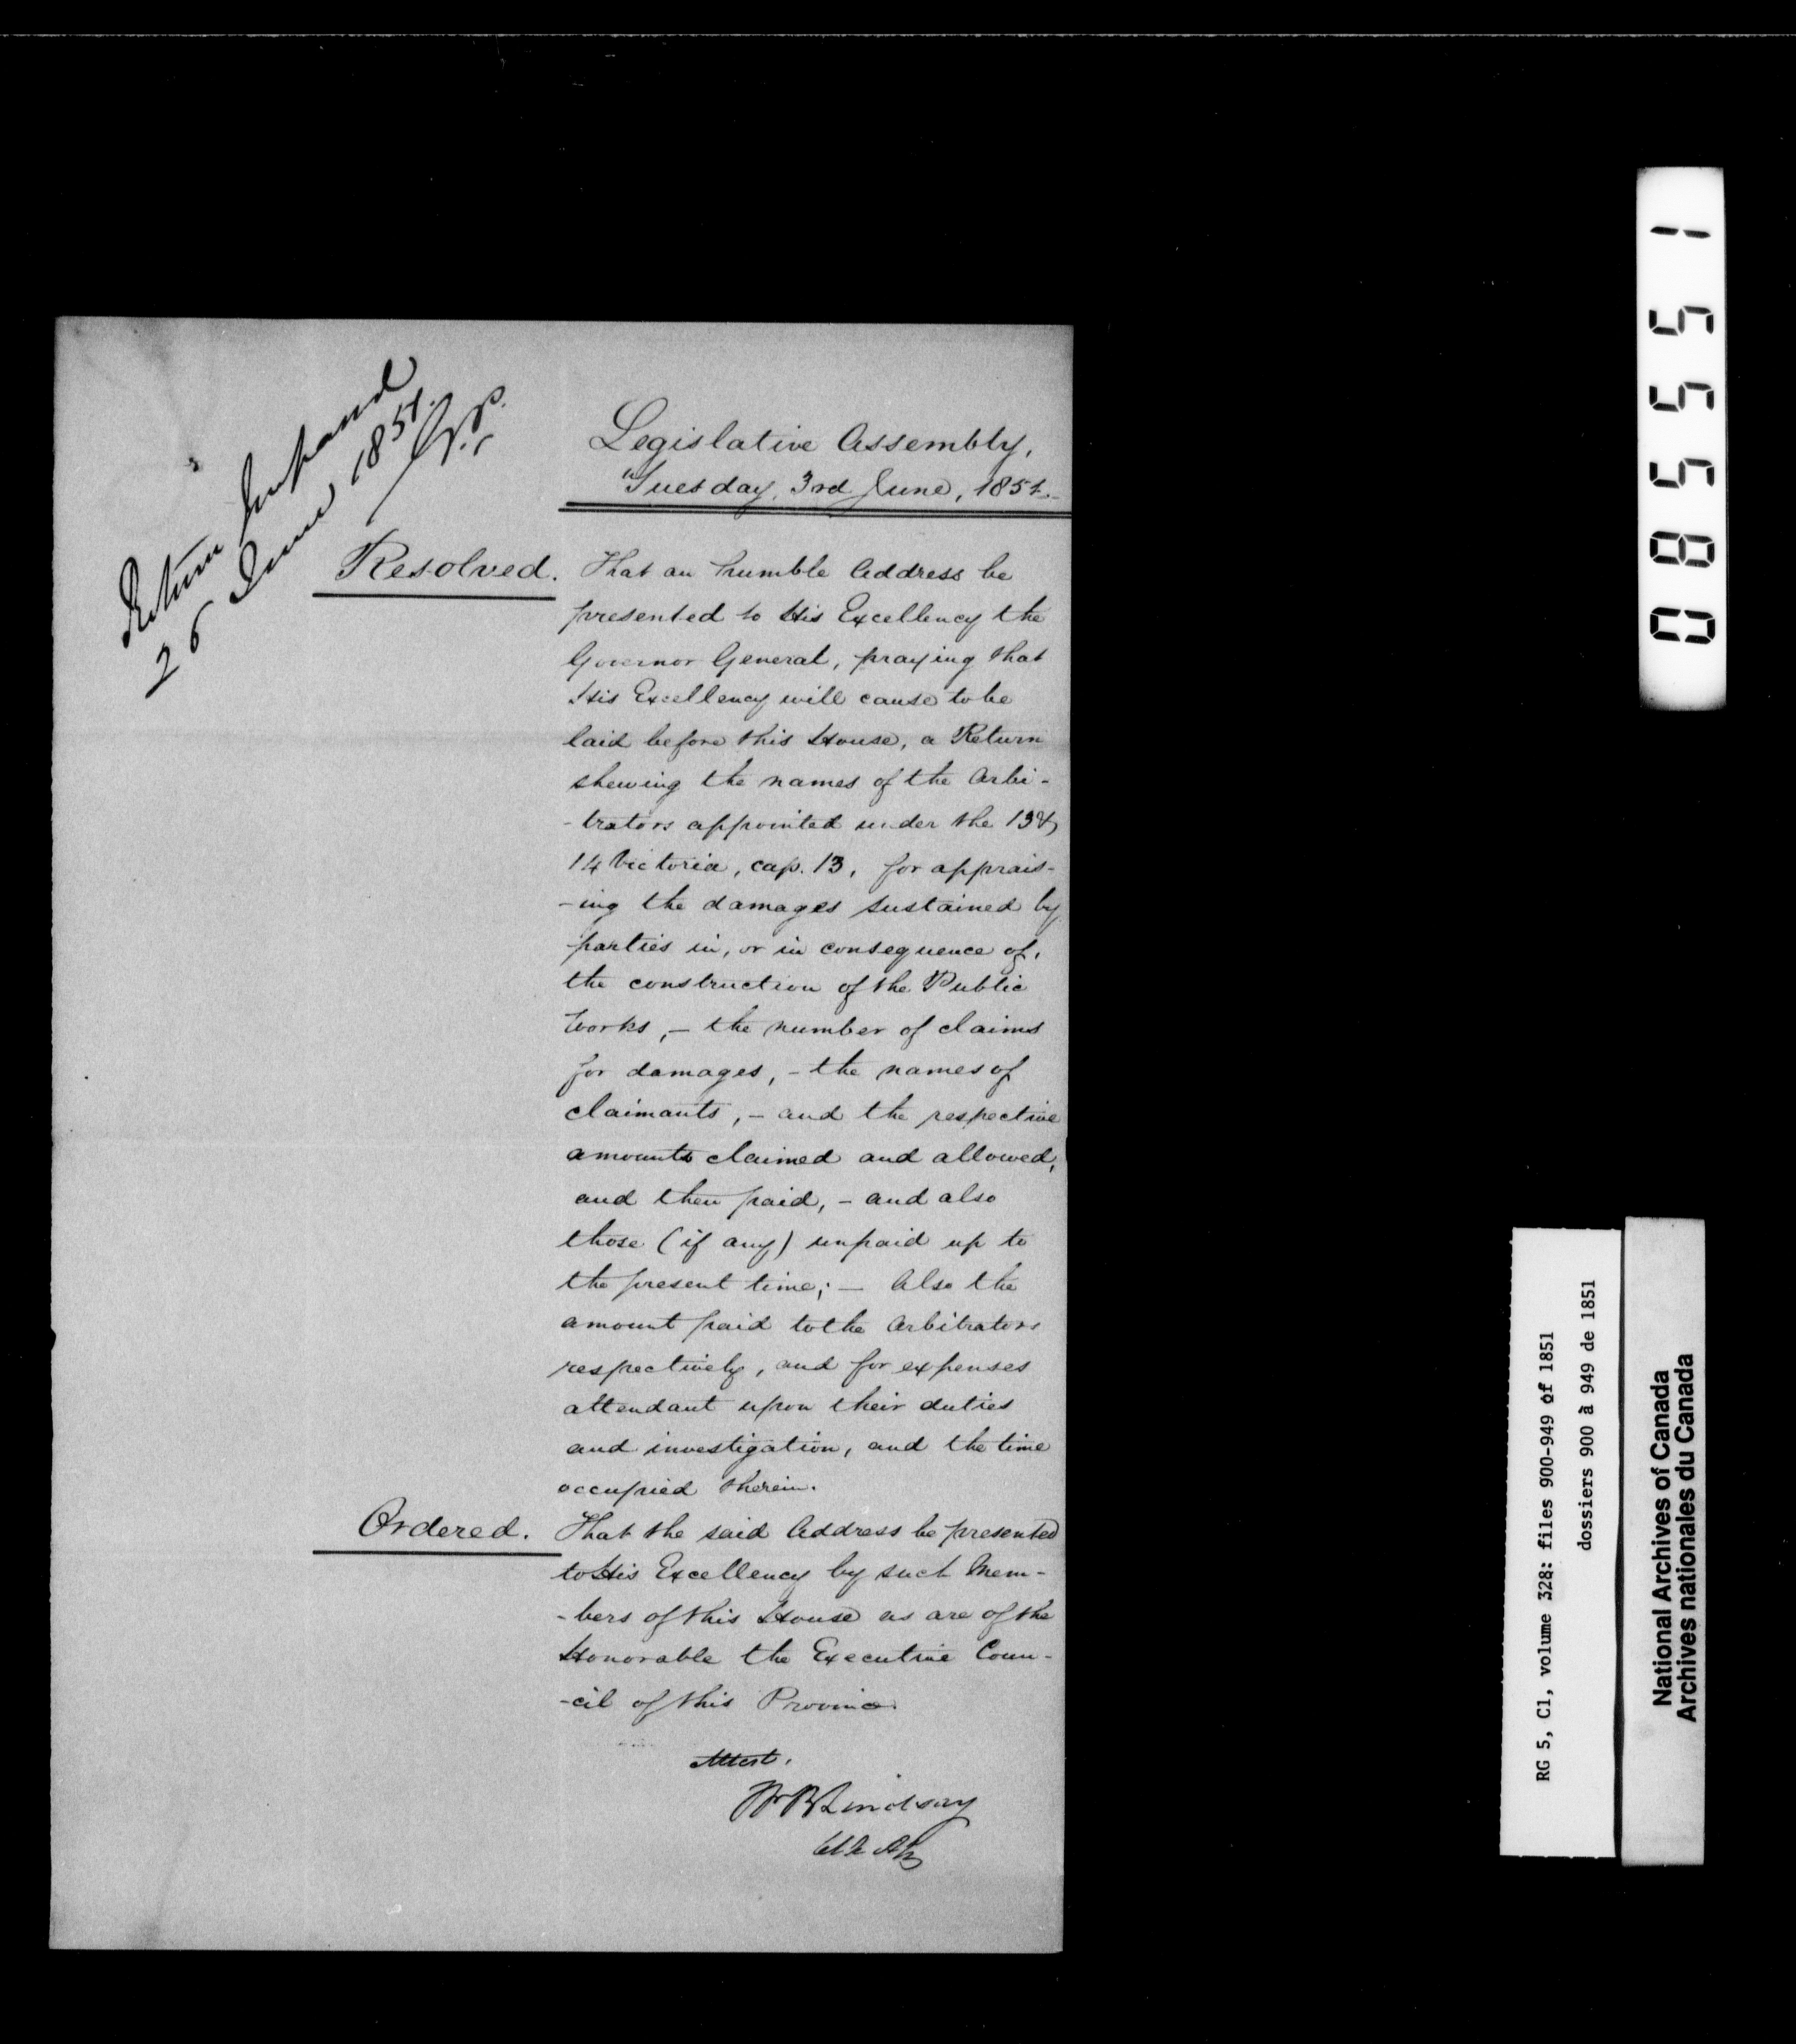 Return
26 June 1851.
Legislative Assembly,
Tuesday, 3rd June, 1851.
Resolved. That an humble Address be
presented to His Excellency the
Governor General, praying that
His Excellency will cause to be
laid before this House, a Return
shewing the names of the Arbi-
-trators appointed under the 13 &
14 Victoria, cap. 13, for apprais-
-ing the damages sustained by
parties in, or in consequence of,
the construction of the Public
Works, - the number of claims
for damages, - the names of
claimants, - and the respective
amounts claimed and allowed,
and then paid, - and also
those (if any) unpaid up to
the present time; - Also the
amount paid to the Arbitrators
respectively, and for expenses
attendant upon their duties
and investigation, and the time
occupied therein.
Ordered. That the said Address be presented
to His Excellency by such Mem-
-bers of this House as are of the
Honorable the Executive Coun-
-cil of this Province.
Attest.
W B Lindsay
085551
RG 5, C1, volume 328: files 900-949 of 1851
dossiers 900 à 949 de 1851
National Archives of Canada
Archives nationales du Canada